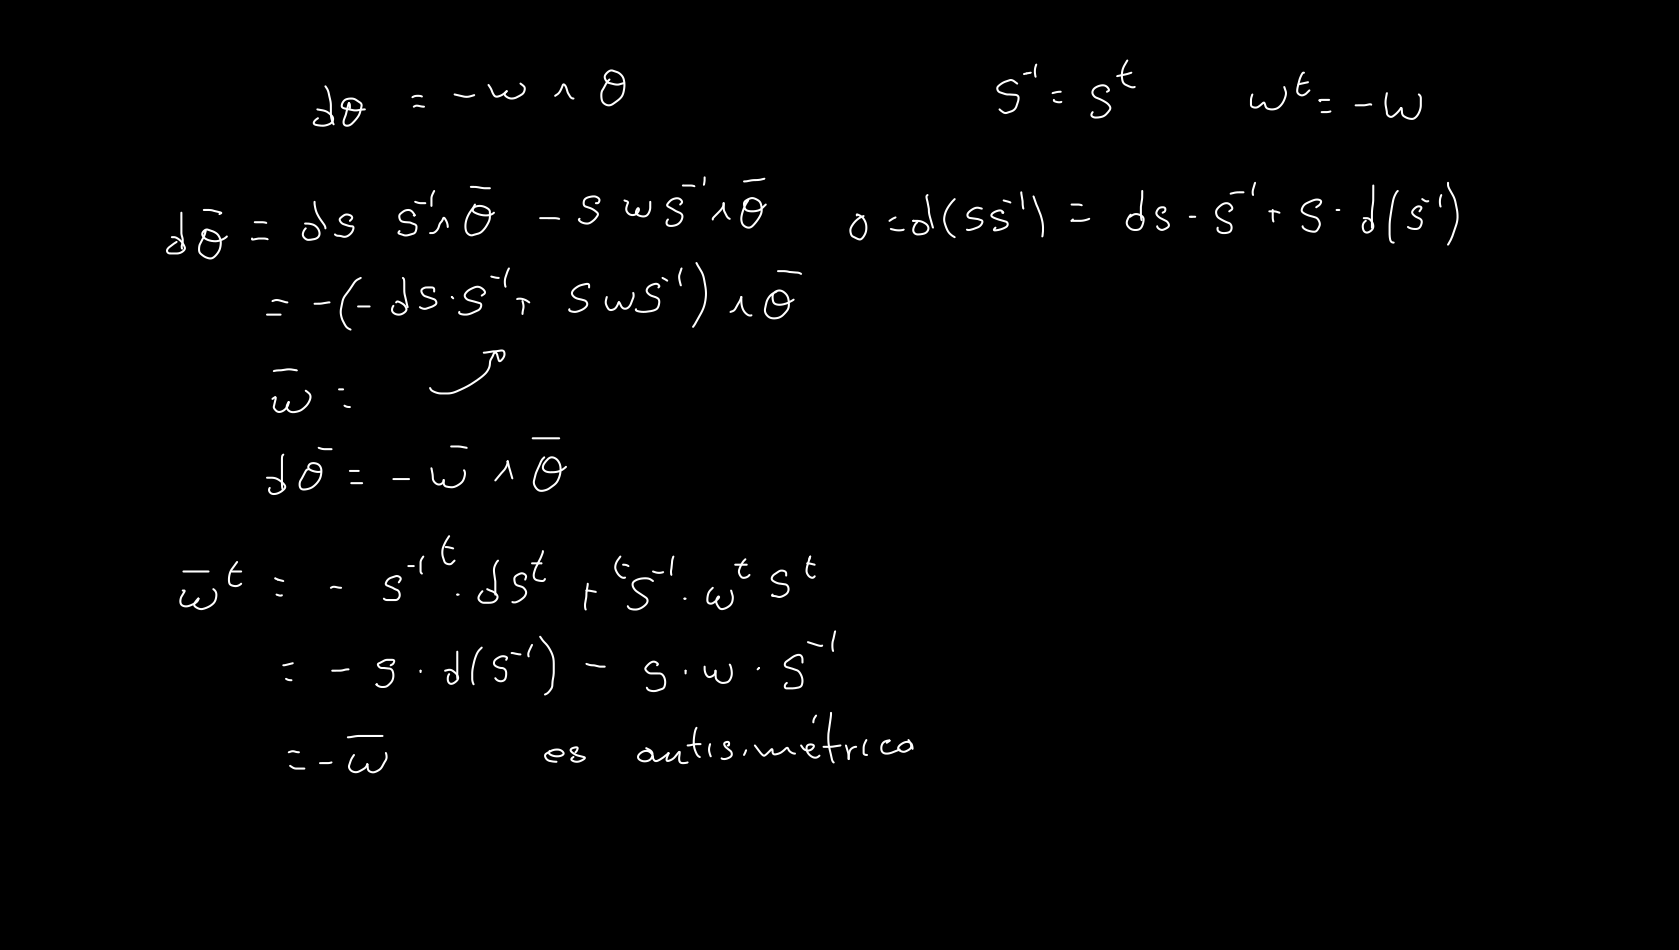 dθ = -w ∧ θ    S⁻¹ = Sᵗ    wᵗ = -w
dθ̄ = ds S⁻¹∧ θ̄ - S w S⁻¹∧ θ̄    0 = d(SS⁻¹) = ds · S⁻¹ + S · d(S⁻¹)
= -(- ds·S⁻¹ + S w S⁻¹) ∧ θ̄
w̄ =
dθ̄ = - w̄ ∧ θ̄
w̄ᵗ = - S⁻¹ᵗ · dSᵗ + ᵗS⁻¹ · wᵗ Sᵗ
= - S · d(S⁻¹) - S · w · S⁻¹
= - w̄    es antisimétrica